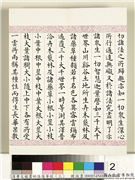 切諸法之所歸趣亦知一切眾生深心
所行通達無礙又於諸法究盡明了示
諸眾生一切智慧迦葉譬如三千大千
世界山川谿谷土地所生卉木叢林及
諸藥草種類若干名色各異密雲彌布
遍覆三千大千世界一時等澍其澤普
洽卉木叢林及諸藥草小根小莖小枝
小葉中根中莖中枝中葉大根大莖大
枝大葉諸樹大小隨上中下各有所受
一雲所雨稱其種性而得生長華菓敷
2